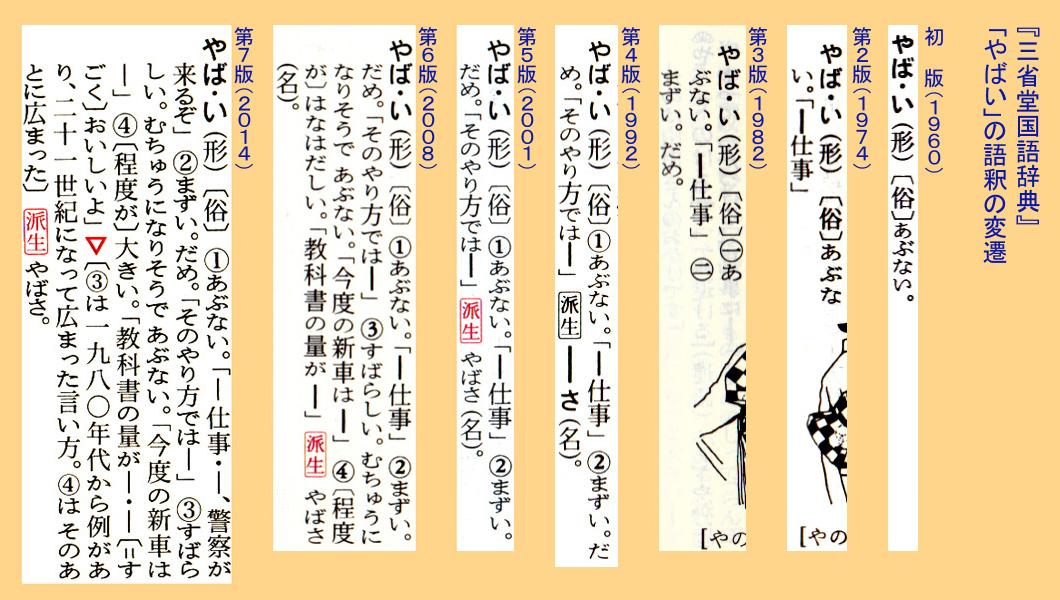 『三省堂国語辞典』
「やばい」の語釈の変遷
初 版（1960）
やば・い（形）〔俗〕あぶない。
第2版（1974）
やば・い（形）〔俗〕あぶな
い。「―仕事」
[やの
第3版（1982）
やば・い（形）〔俗〕㊀あ
ぶない。「―仕事」㊁
まずい。だめ。
[やの
第4版（1992）
やば・い（形）〔俗〕①あぶない。「―仕事」②まずい。だ
め。「そのやり方では―」派生―さ（名）。
第5版（2001）
やば・い（形）〔俗〕①あぶない。「―仕事」②まずい。
だめ。「そのやり方では―」派生 やばさ（名）。
第6版（2008）
やば・い（形）〔俗〕①あぶない。「―仕事」②まずい。
だめ。「そのやり方では―」③すばらしい。むちゅうに
なりそうで あぶない。「今度の新車は―」④〔程度
が〕はなはだしい。「教科書の量が―」派生 やばさ
（名）。
第7版（2014）
やば・い（形）〔俗〕①あぶない。「―仕事・―、警察が
来るぞ」②まずい。だめ。「そのやり方では―」③すばら
しい。むちゅうになりそうで あぶない。「今度の新車は
―」④〔程度が〕大きい。「教科書の量が―・―〔=す
ごく〕おいしいよ」▽〔③は一九八〇年代から例があ
り、二十一世紀になって広まった言い方。④は そのあ
とに広まった〕派生 やばさ。